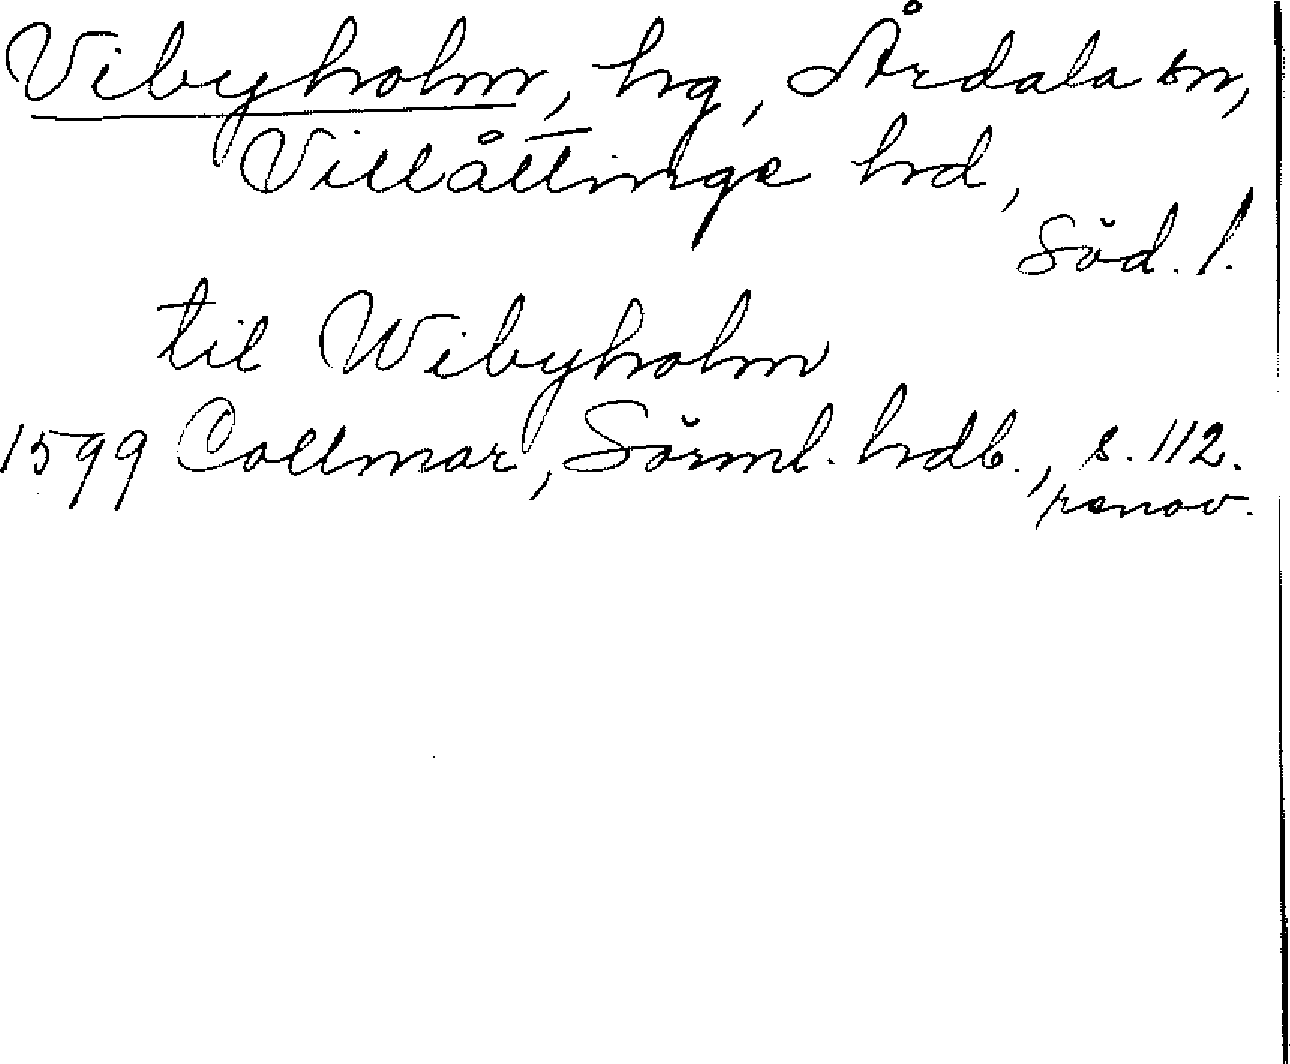 Vibyholm, hg, Årdala sn,
Villåttinge hd,
Söd. l.
til Wibyholm
1599 Collmar, Sörml. hdb., s. 112.
renov.